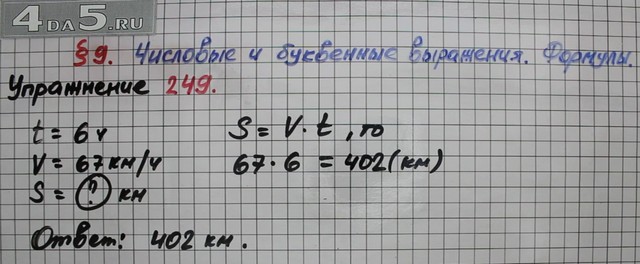 4DA5.RU
§ 9. Числовые и буквенные выражения. Формулы.
Упражнение 249.
t = 6 ч
V = 67 км/ч
S = ? км
S = V · t , то
67 · 6 = 402 (км)
Ответ: 402 км.